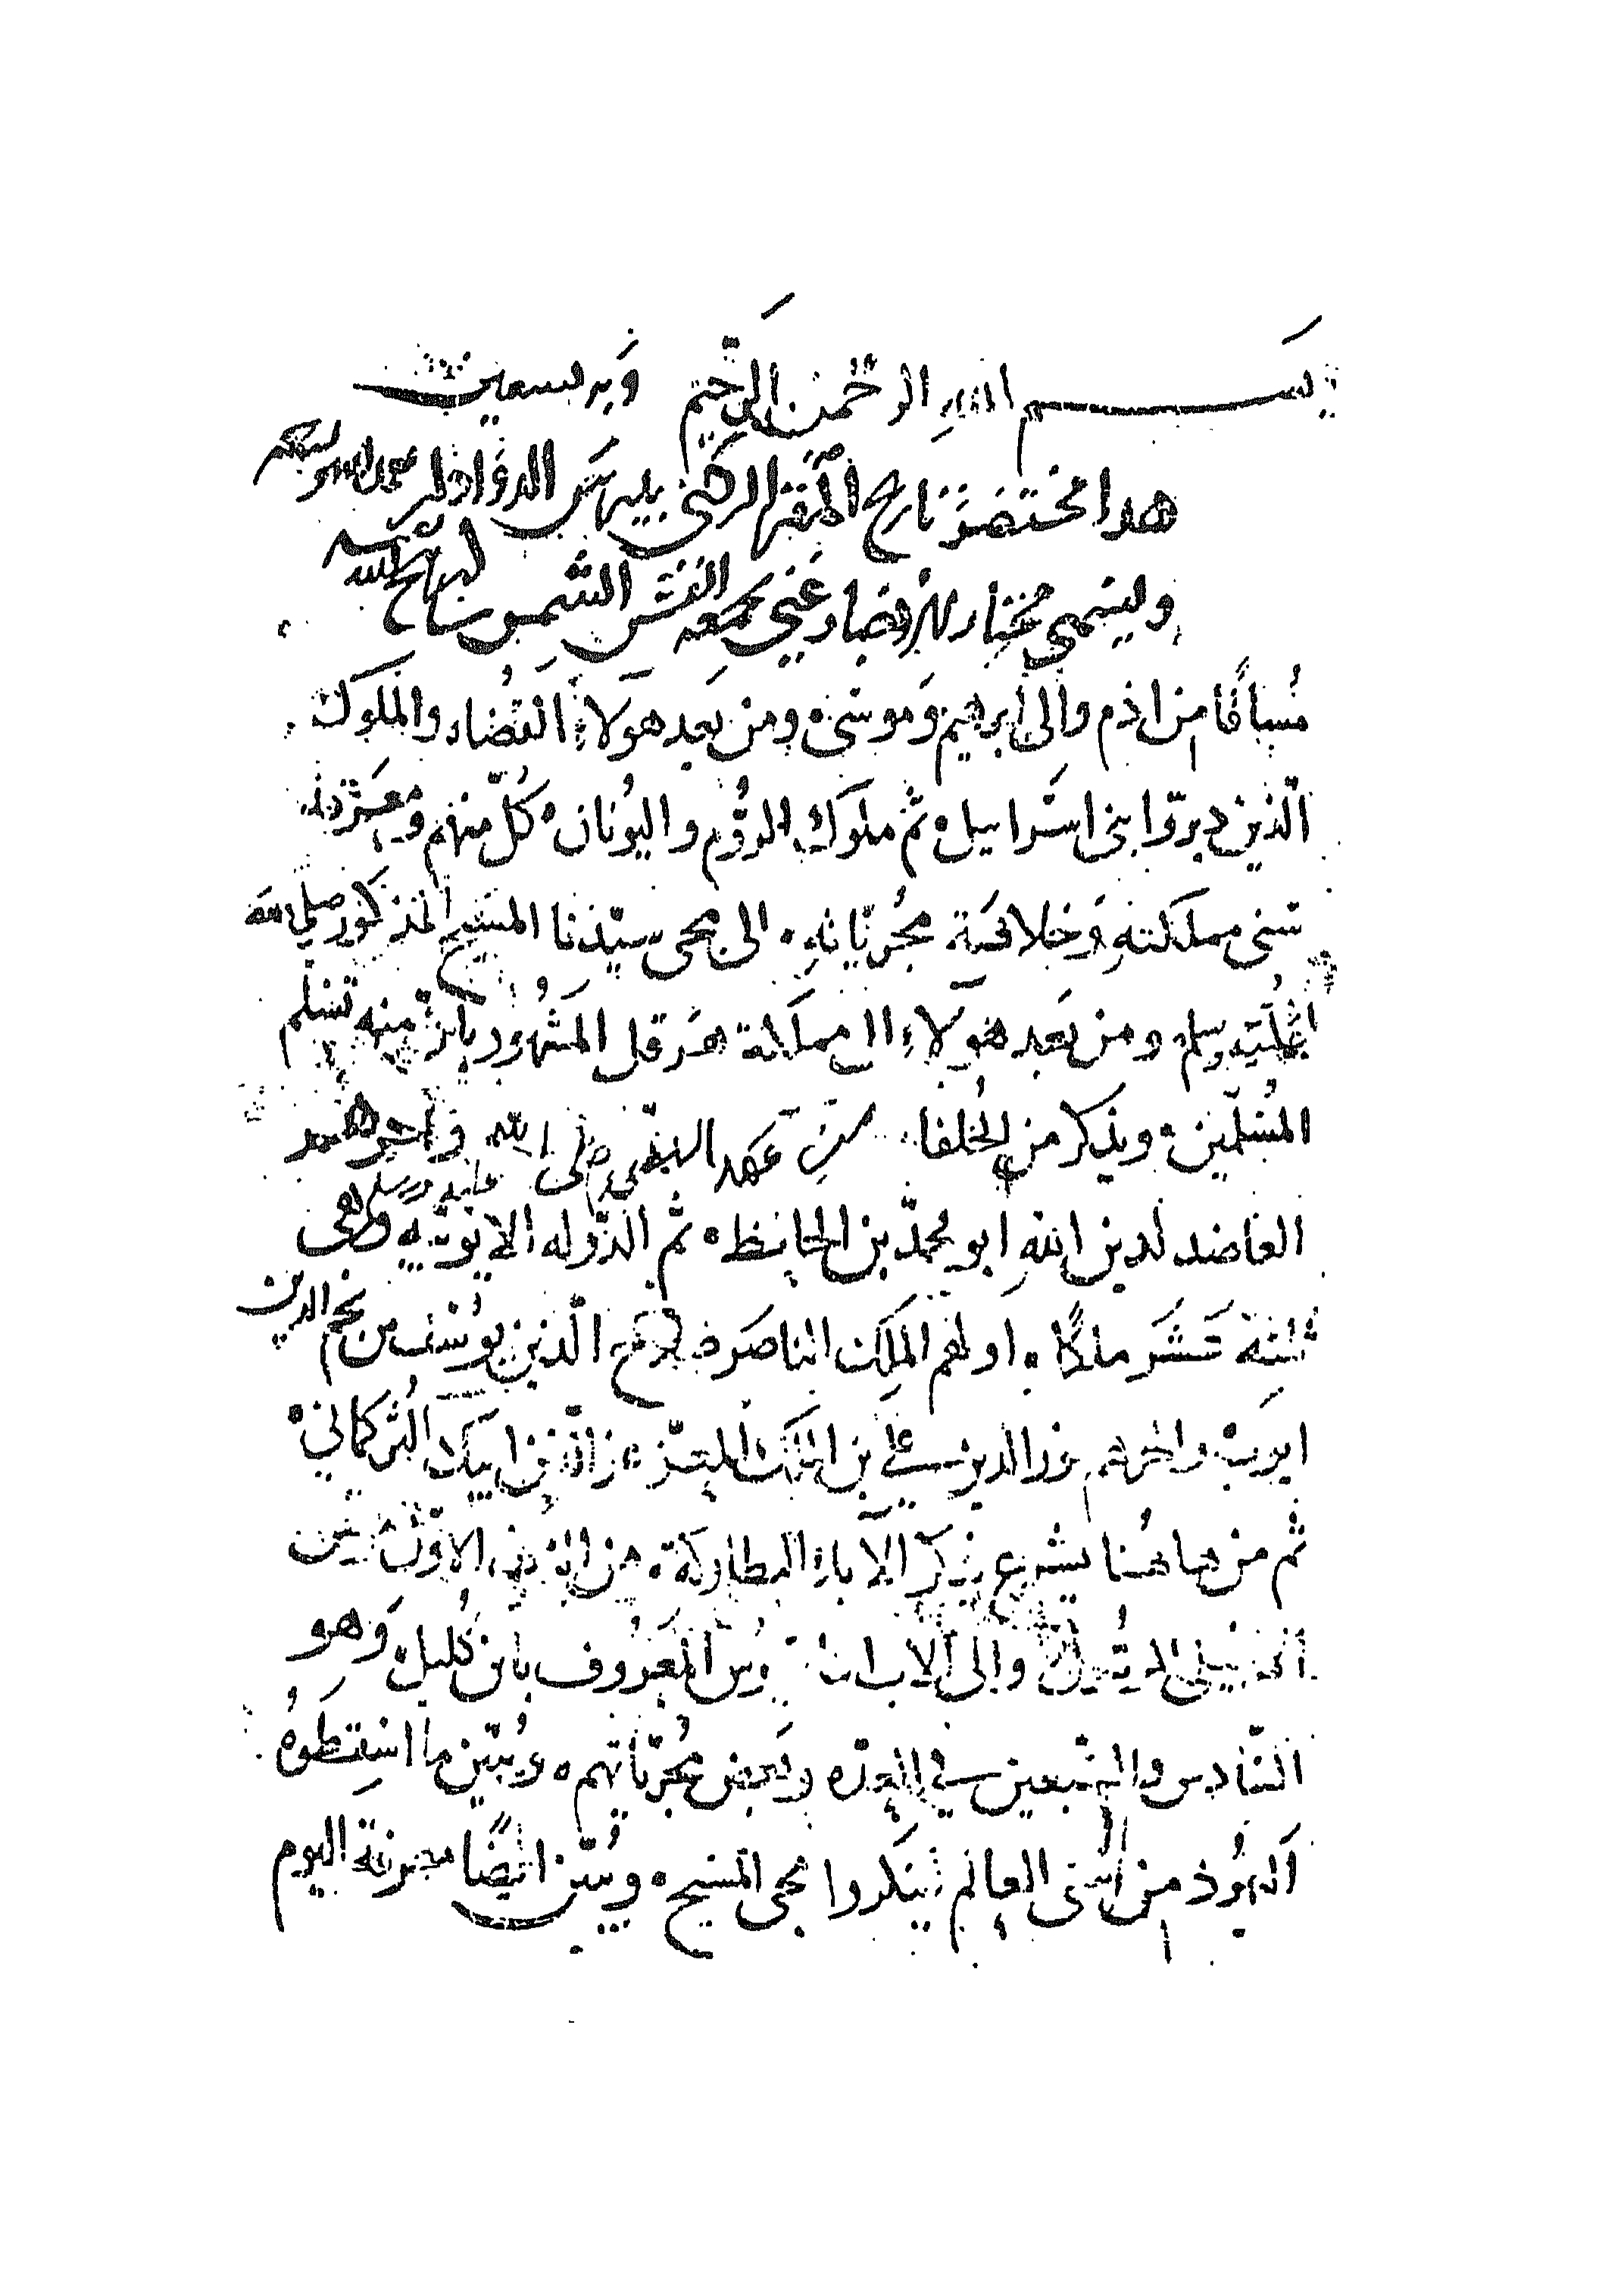 بسم الله الرحمن الرحيم وبه نستعين
هدا مختصر تاريخ المقر الركنى بيبرس الدوادار
ويسمى مختار الاخبار عنى بجمعه الشمس
مُساقًا من ادم والى ابرهيم وموسى ومن بعد هولاء القضاه والملوك
الّذين دبروا بنى اسرايل ثم ملوك الروُّم واليُونان كُلّ منهم ومعرفة
سنى مملكته وخلافة مجُرياته الى مجى سيّدنا المسيح المذكور صلى الله
عليه وسلم ومن بعد هولاء الى مملكة هرقل المشهُور بان منه تسلم
المُسلمين ويذكر من الخُلفا من عهد النبى صلى الله عليه وسلم واخرهم
العاضد لدين الله ابو محمّد بن الحافظ ثم الدّوله الايوبيّه وهى
ثلثة عَشَر ملكًا اولهم الملك الناصر صلاح الّدين يوُسُف بن نجم الدين
ايوب واخرهم نور الدين على بن الملك المعزّ عز الدين ايبك التُركمانى
ثم من هاهُنا يشرع بذكر الآباء البطاركة من مرقس
الانجيلى الرسُول والى الاب المعرُوف بابن كُليل وَهو
السّادس والسّبعين فى العدّه وبعض مجُرياتهم ويُبيّن ما اسقطوهُ
اليهُود من سنى العالم لينكروا مجى المسيح ويُبيّن ايضًا معرفة اليوم